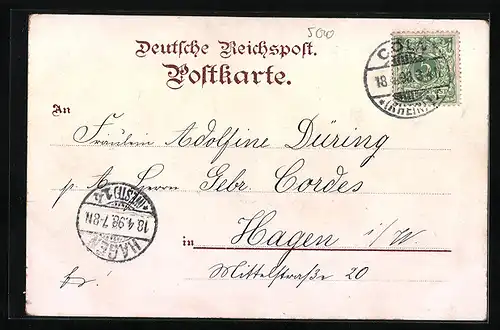 500
Deutsche Reichspost.
Postkarte.
CÖLN
18.4.98
*(RHEIN)
An
Fräulein Adolfine Düring
p. A. Herrn Gebr. Cordes
in Hagen i/W.
Mittelstraße 20
HAGEN
18.4.98.7-8N.
*(WESTF.)1